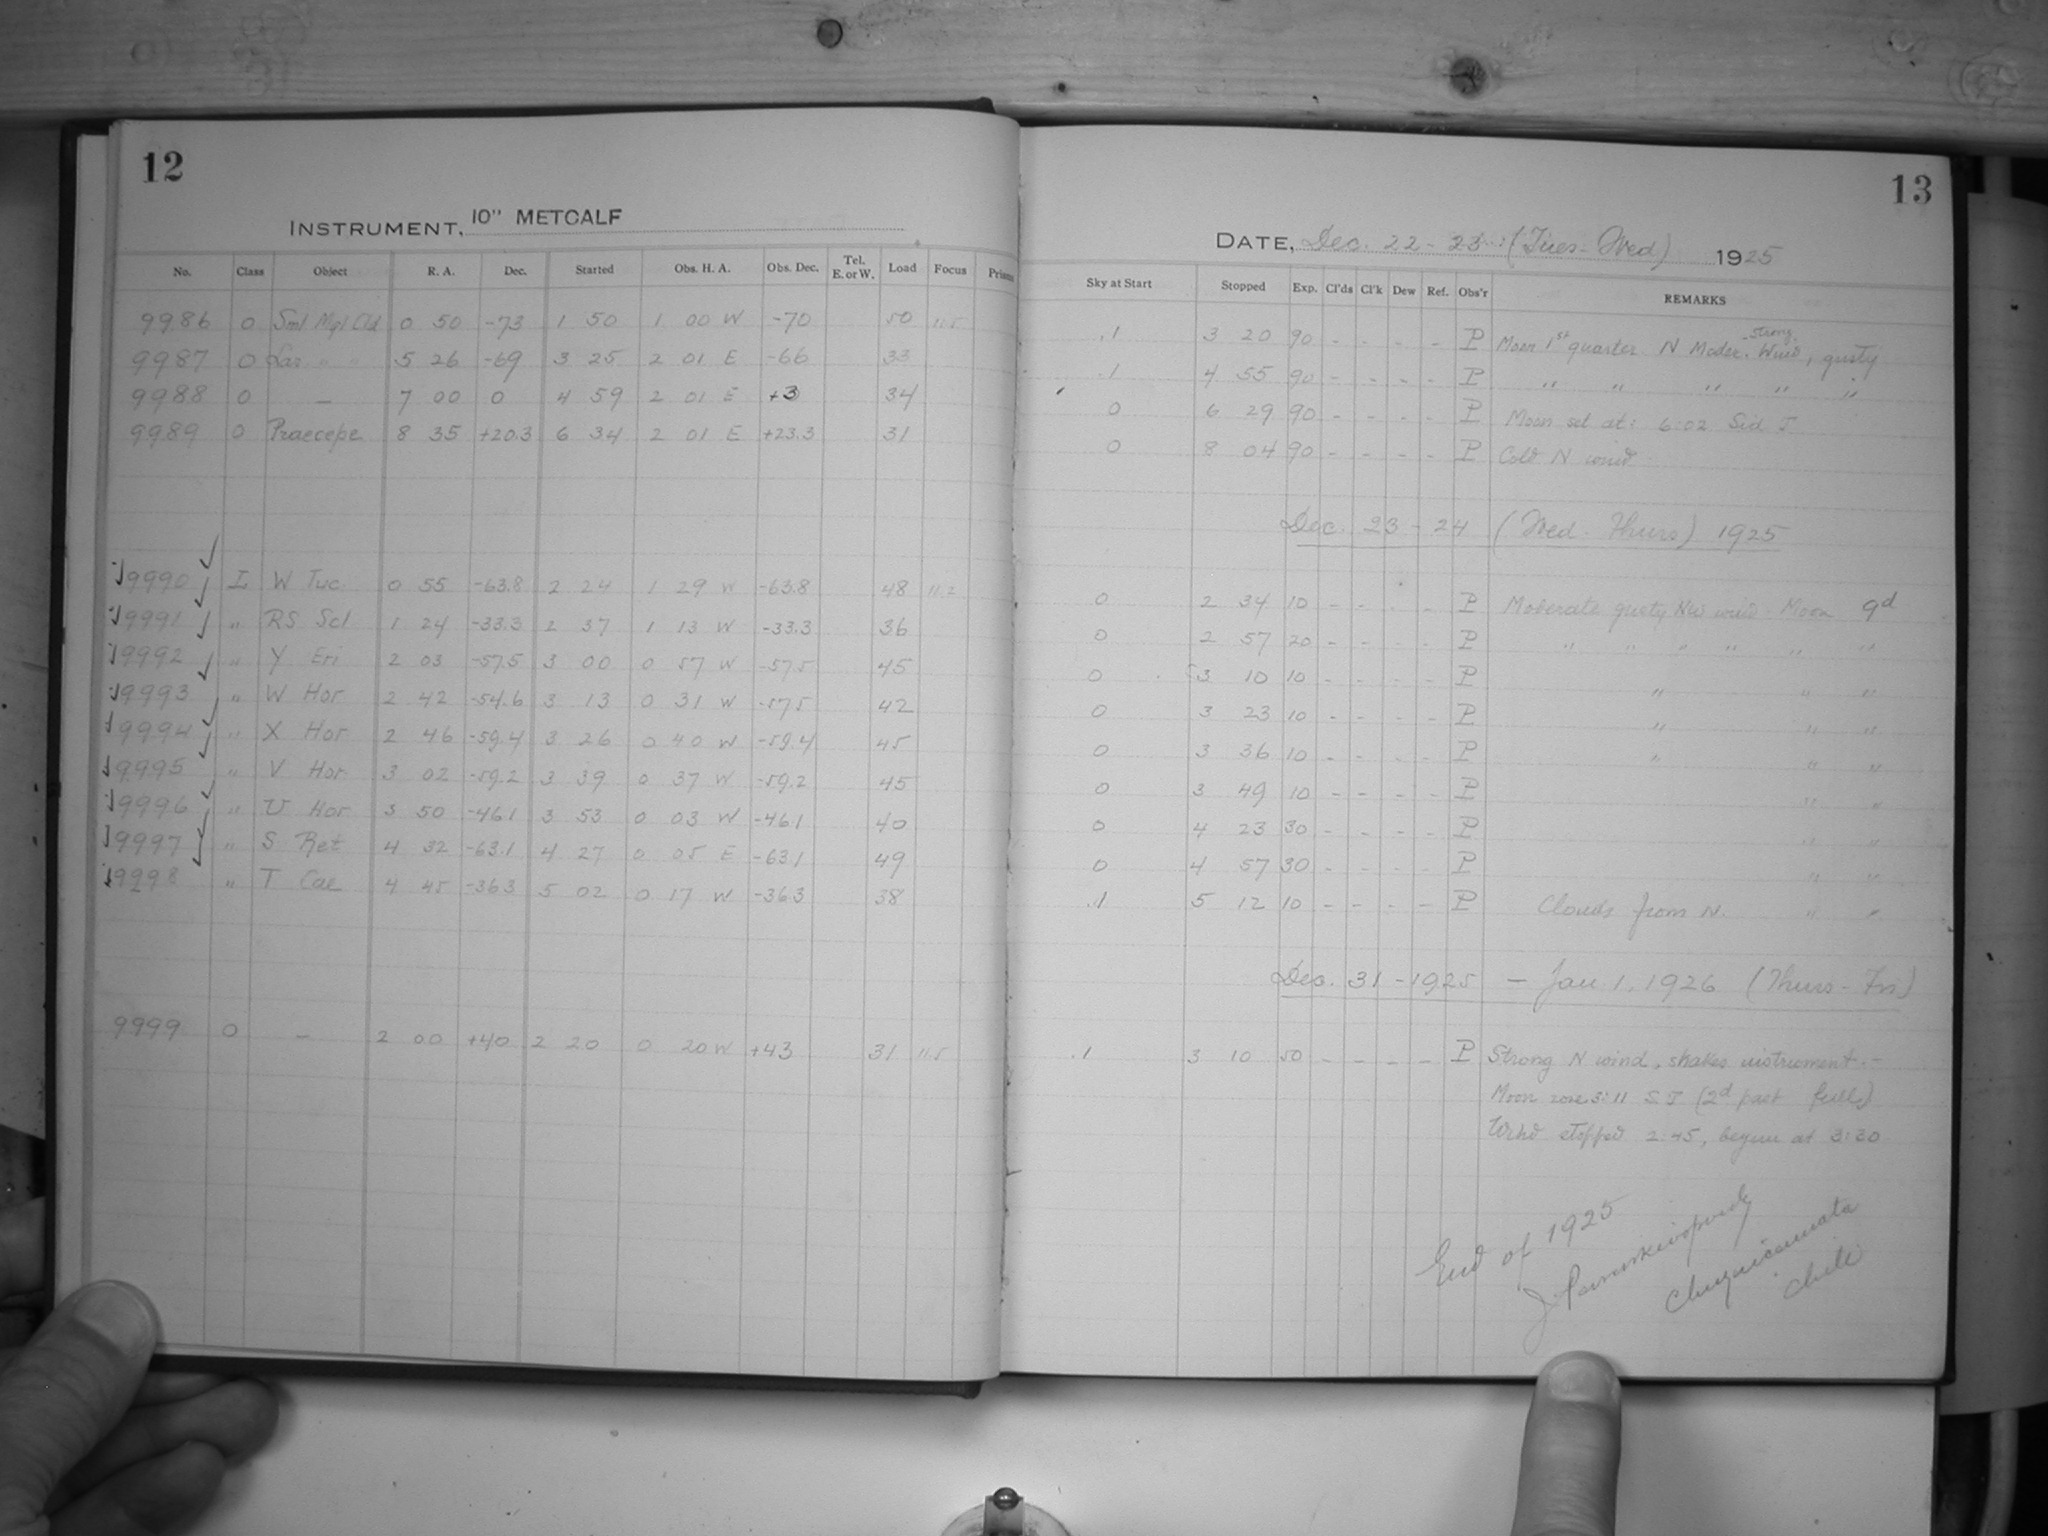 12
INSTRUMENT, 10" METCALF
No. Class Object R. A. Dec. Started Obs. H. A. Obs. Dec. Tel. E. or W. Load Focus Prisms
9986 O Sml Mgl Cld 0 50 -73 1 50 1 00 W -70 50 11.5
9987 O Lar " " 5 26 -69 3 25 2 01 E -66 33
9988 O — 7 00 0 4 59 2 01 E +3 34
9989 O Praecepe 8 35 +20.3 6 34 2 01 E +23.3 31
9990 I W Tuc. 0 55 -63.8 2 24 1 29 W -63.8 48 11.2
9991 " RS Scl 1 24 -33.3 2 37 1 13 W -33.3 36
9992 " Y Eri 2 03 -57.5 3 00 0 57 W -57.5 45
9993 " W Hor 2 42 -54.6 3 13 0 31 W -57.5 42
9994 " X Hor 2 46 -59.4 3 26 0 40 W -59.4 45
9995 " V Hor 3 02 -59.2 3 39 0 37 W -59.2 45
9996 " U Hor 3 50 -46.1 3 53 0 03 W -46.1 40
9997 " S Ret 4 32 -63.1 4 27 0 05 E -63.1 49
9998 " T Cae 4 45 -36.3 5 02 0 17 W -36.3 38
9999 O — 2 00 +40 2 20 0 20 W +43 31 11.5
13
DATE, Dec. 22 - 23 (Tues - Wed) 1925
Sky at Start Stopped Exp. Cl'ds Cl'k Dew Ref. Obs'r REMARKS
.1 3 20 90 - - - - P Moon 1st quarter. N Moder. Strong Wind, gusty
.1 4 55 90 - - - - P " " " " "
0 6 29 90 - - - - P Moon set at: 6:02 Sid T
0 8 04 90 - - - - P Cold N wind
Dec. 23 - 24 (Wed. Thurs) 1925
0 2 34 10 - - - - P Moderate gusty NW wind - Moon 9d
0 2 57 20 - - - - P " " " " " "
0 3 10 10 - - - - P " " "
0 3 23 10 - - - - P " " "
0 3 36 10 - - - - P " " "
0 3 49 10 - - - - P " "
0 4 23 30 - - - - P " "
0 4 57 30 - - - - P " "
.1 5 12 10 - - - - P Clouds from N. " "
Dec. 31 - 1925 — Jan 1, 1926 (Thurs - Fri)
.1 3 10 50 - - - - P Strong N wind, shakes instrument. -
Moon rose 3:11 S T (2d past full)
Wind stopped 2:45, begun at 3:30
End of 1925
J.
Chuquicamata
Chile